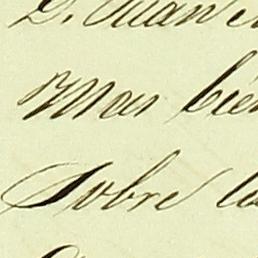 D. Juan
Mas bien
Sobre la